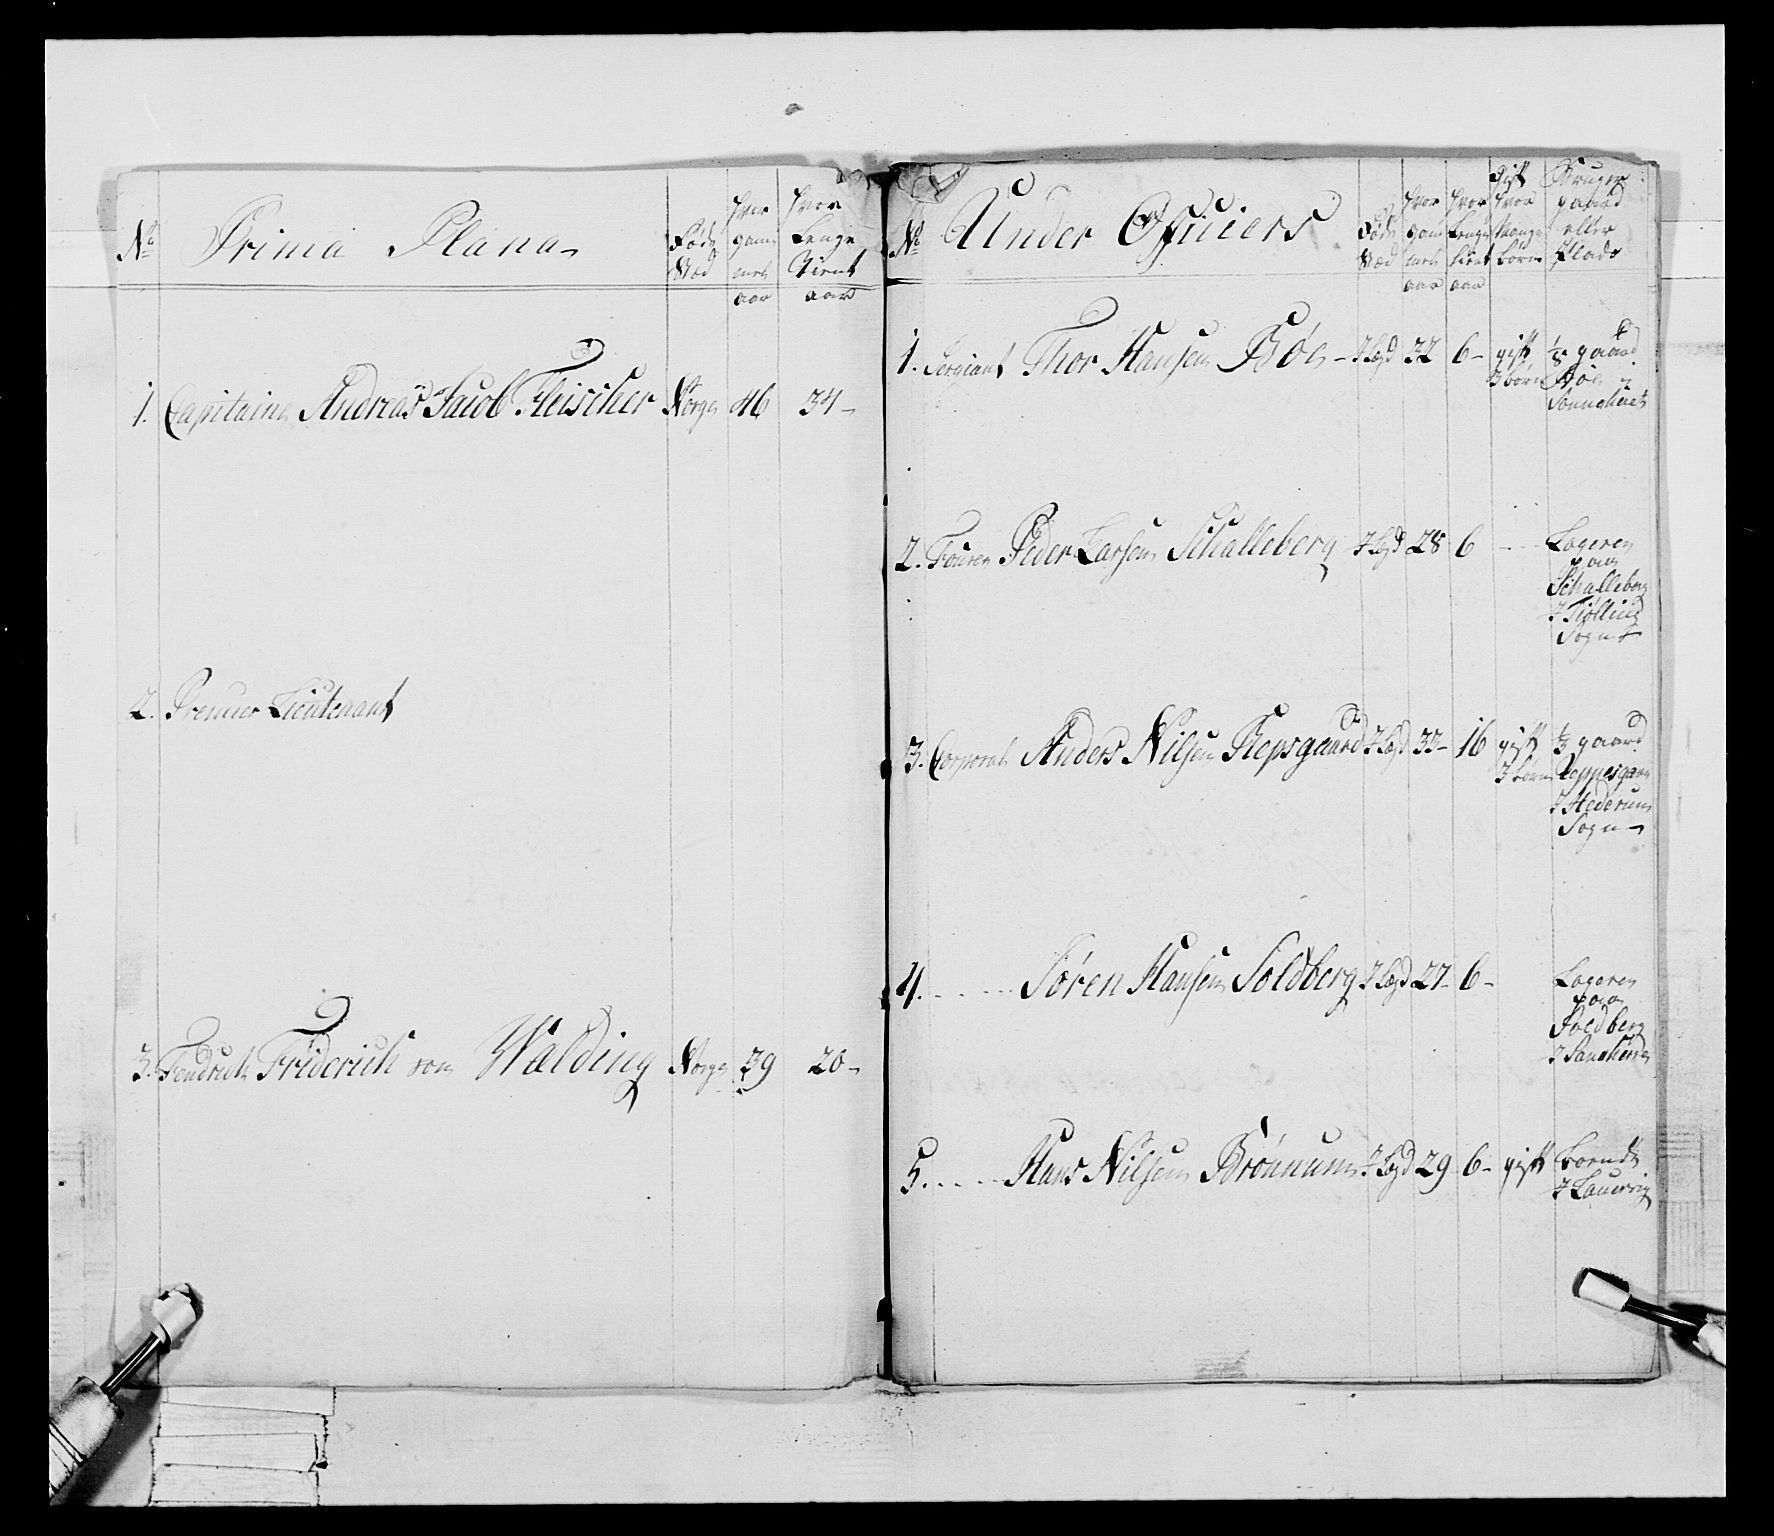 No
Prima Plana
Føde
Stæd
hvor
gam
mel
aar
hvor
Lenge
Tient
aar
1. Capitaine Andreas Jacob Fleischer Norge 46 34
2. Premier Lieutenant
3. Fendrich Friderich von Walding Norge 39 20
No
Under Officiers
Føde
Stæd
hvor
gam
mel
aar
hvor
Lenge
tient
aar
gift
hvor
Mange
børn
Bruger
gaard
eller
Plads
1. Sergiant Thor Hansen Bøe I Lægd 32 6 gift 1/8 gaard
3 børn Bøe i
2. Fourer Peder Larsen Schalleberg I Lægd 28 6 Logerer
paa
Schalleberg
I Tiølling
Sogn
3. Corporal Anders Nilsen Repsgaard I Lægd 33 16 gift 1/3 gaard
3 børn
I Hederum
Sogn
4. Søren Hansen Soldberg I Lægd 27 6 Logerer
paa
Soldberg
I
5. Hans Nilsen Brønnum I Lægd 29 6 gift boendt
I Lauervig